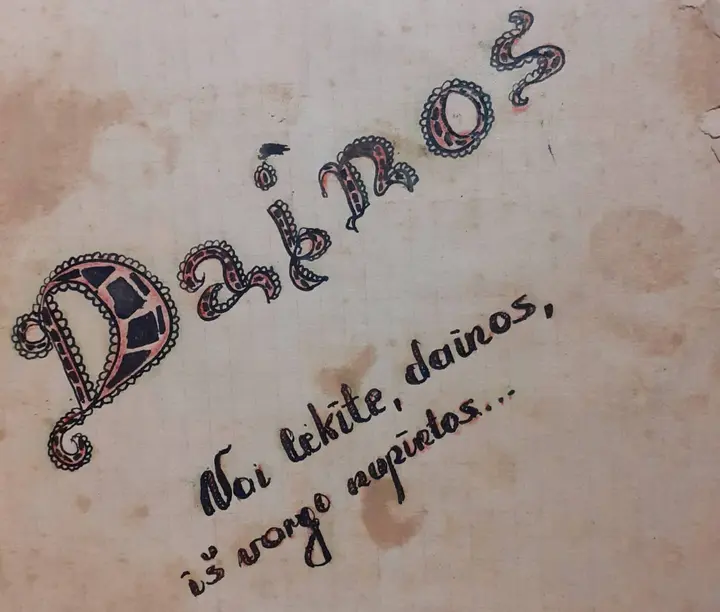 Dainos
Nai lėkite, dainos,
iš vargo nupintos...